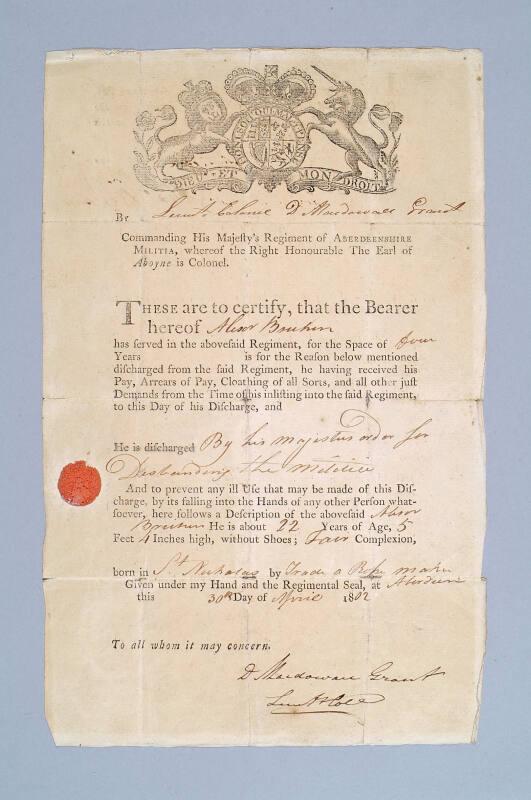 HONI SOIT QUI MAL Y PENSE
DIEU ET MON DROIT
By Lieut. Colonel D Macdowall Grant
Commanding His Majeſty's Regiment of ABERDEENSHIRE
MILITIA, whereof the Right Honourable The Earl of
Aboyne is Colonel.
THESE are to certify, that the Bearer
hereof
has ſerved in the aboveſaid Regiment, for the Space of four
Years is for the Reaſon below mentioned
diſcharged from the ſaid Regiment, he having received his
Pay, Arrears of Pay, Cloathing of all Sorts, and all other juſt
Demands from the Time of his inliſting into the ſaid Regiment,
to this Day of his Diſcharge, and
He is diſcharged By his majestys order for
Disbanding the militia
And to prevent any ill Uſe that may be made of this Diſ-
charge, by its falling into the Hands of any other Perſon what-
ſoever, here follows a Deſcription of the aboveſaid
He is about 22 Years of Age, 5
Feet 4 Inches high, without Shoes; Fair Complexion,
born in St Nicholas by Trade a Rope maker
Given under my Hand and the Regimental Seal, at Aberdeen
this 30th Day of April 1802
To all whom it may concern.
D Macdowall Grant
Lieut Coll